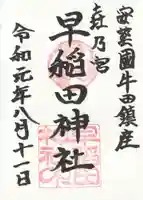 安芸國牛田鎮座
㐂乃宮
早稲田神社
令和元年八月十一日